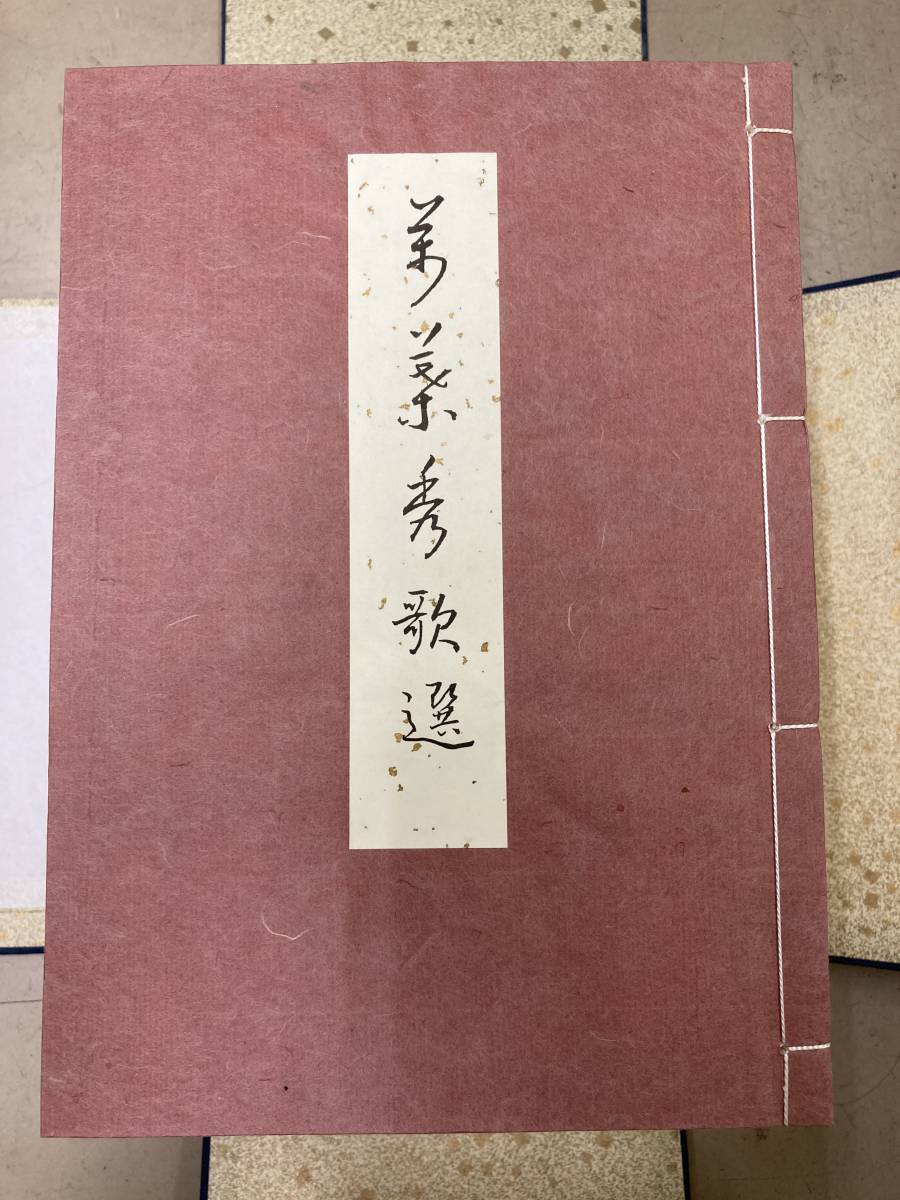 萬葉秀歌選